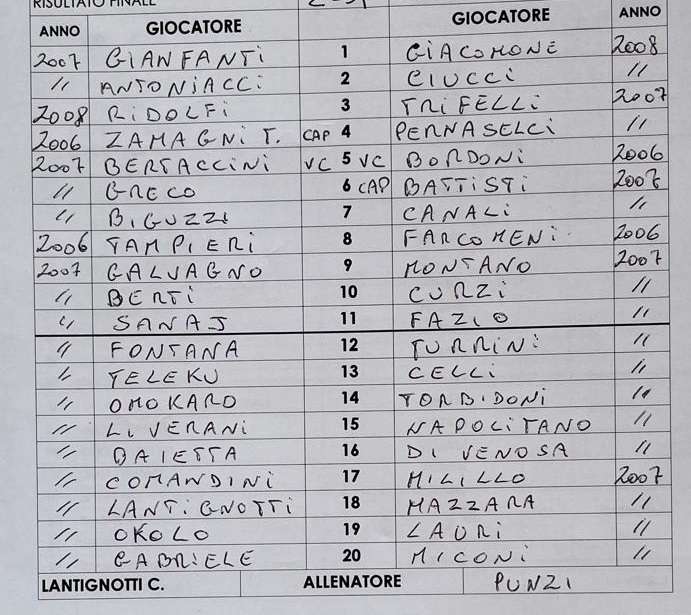 RISULTATO FINALE
ANNO GIOCATORE GIOCATORE ANNO
2007 GIANFANTI 1 GIACOMONE 2008
" ANTONIACCI 2 CIUCCI "
2008 RIDOLFI 3 TRIFELLI 2007
2006 ZAMAGNI T. CAP 4 PERNASELCI "
2007 BERTACCINI VC 5 VC BORDONI 2006
" GRECO 6 CAP BATTISTI 2007
" BIGUZZI 7 CANALI "
2006 TAMPIERI 8 FARCOMENI 2006
2007 GALVAGNO 9 MONTANO 2007
" BERTI 10 CURZI "
" SANAJ 11 FAZIO "
" FONTANA 12 TURRINI "
" TELEKU 13 CELLI "
" OMOKARO 14 TORBIDONI "
" LIVERANI 15 NAPOLITANO "
" DAIETTA 16 DI VENOSA "
" COMANDINI 17 MILILLO 2007
" LANTIGNOTTI 18 MAZZARA "
" OKOLO 19 LAURI "
" GABRIELE 20 MICONI "
LANTIGNOTTI C. ALLENATORE PUNZI